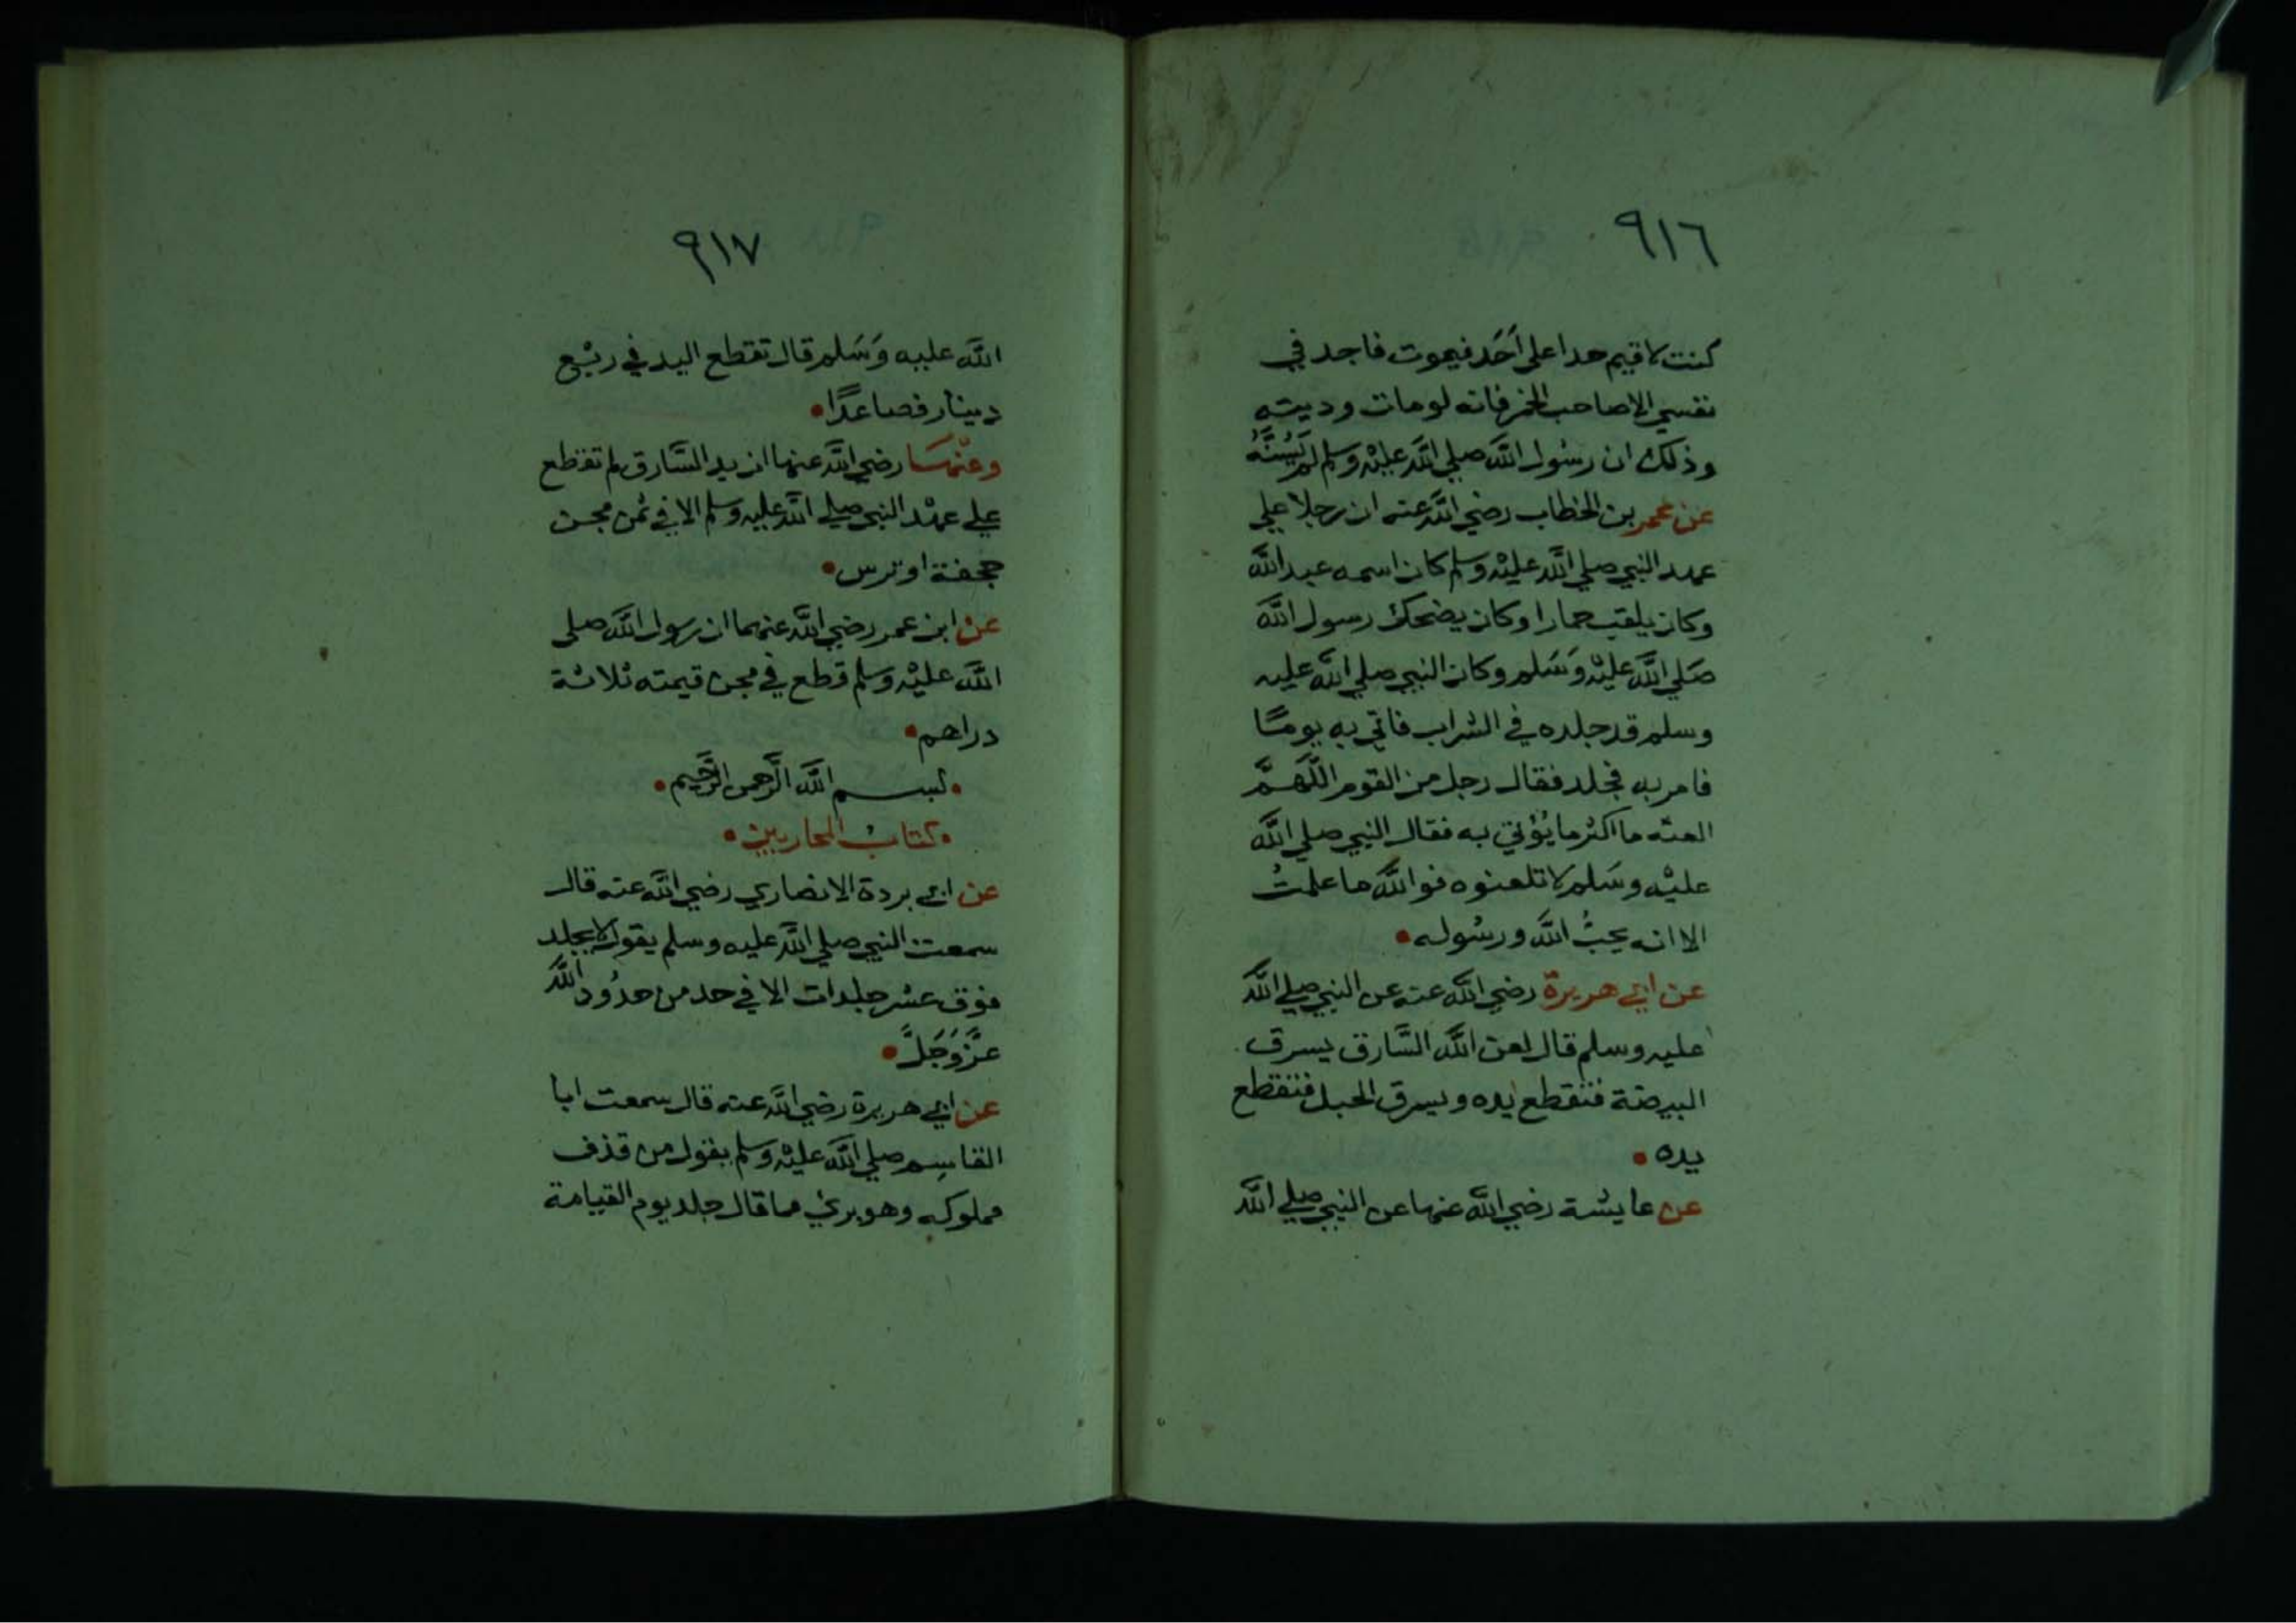 ٩١٦
كنت لاقيم حدا على أحَد فيموت فاجد في
نفسي الاصاحب الخمر فانه لومات وديته
وذلك ان رسُول اللَّه صلي اللَّه عليْه وسلم لم يَسُنَّهُ
عن عمر بن الخطاب رضي اللَّه عنه ان رجلا علي
عهد النبي صلي اللَّه عليْه وسلم كان اسمه عبد اللَّه
وكان يلقب حمارا وكان يضحك رسول اللَّه
صَلي اللَّه عليْه وَسَلم وكان النبي صلي اللَّه عليه
وسلم قد جلده في الشراب فاتي به يومًا
فامر به فجلد فقال رجل من القوم اللَّهمَّ
العنه ما اكثر ما يُؤتي به فقال النبي صلي اللَّه
عليْه وسَلم لا تلعنوه فو اللَّه ما علمتُ
الا انه يحبُّ اللَّه ورسُوله •
عن ابي هريرة رضي اللَّه عنه عن النبي صلي اللَّه
عليه وسلم قال لعن اللَّه السَّارق يسرق
البيضة فتقطع يده ويسرق الحبل فتقطع
يده •
عن عايشة رضي اللَّه عنها عن النبي صلي اللَّه
٩١٧
اللَّه عليه وَسَلم قال تقطع اليد في ربْع
دينار فصاعدًا •
وعنْهَا رضي اللَّه عنها ان يد السَّارق لم تقطع
علي عهْد النبي صلي اللَّه عليه وسلم الا في ثمن مجن
حجفة او ترس •
عن ابن عمر رضي اللَّه عنهما ان رسول اللَّه صلى
اللَّه عليْه وسلم قطع في مجن قيمته ثلاثة
دراهم •
• بسم اللَّه الرَّحمن الرَّحيم •
• كتابُ المحاربين •
عن ابي بردة الانصاري رضي اللَّه عنه قال
سمعت النبي صلي اللَّه عليه وسلم يقول لا يجلد
فوق عشر جلدات الا في حد من حدُود اللَّه
عزَّ وَجَلَّ •
عن ابي هريرة رضي اللَّه عنه قال سمعت ابا
القاسِم صلي اللَّه عليْه وسلم يقول من قذف
مملوكه وهو بريء مما قال جلد يوم القيامة